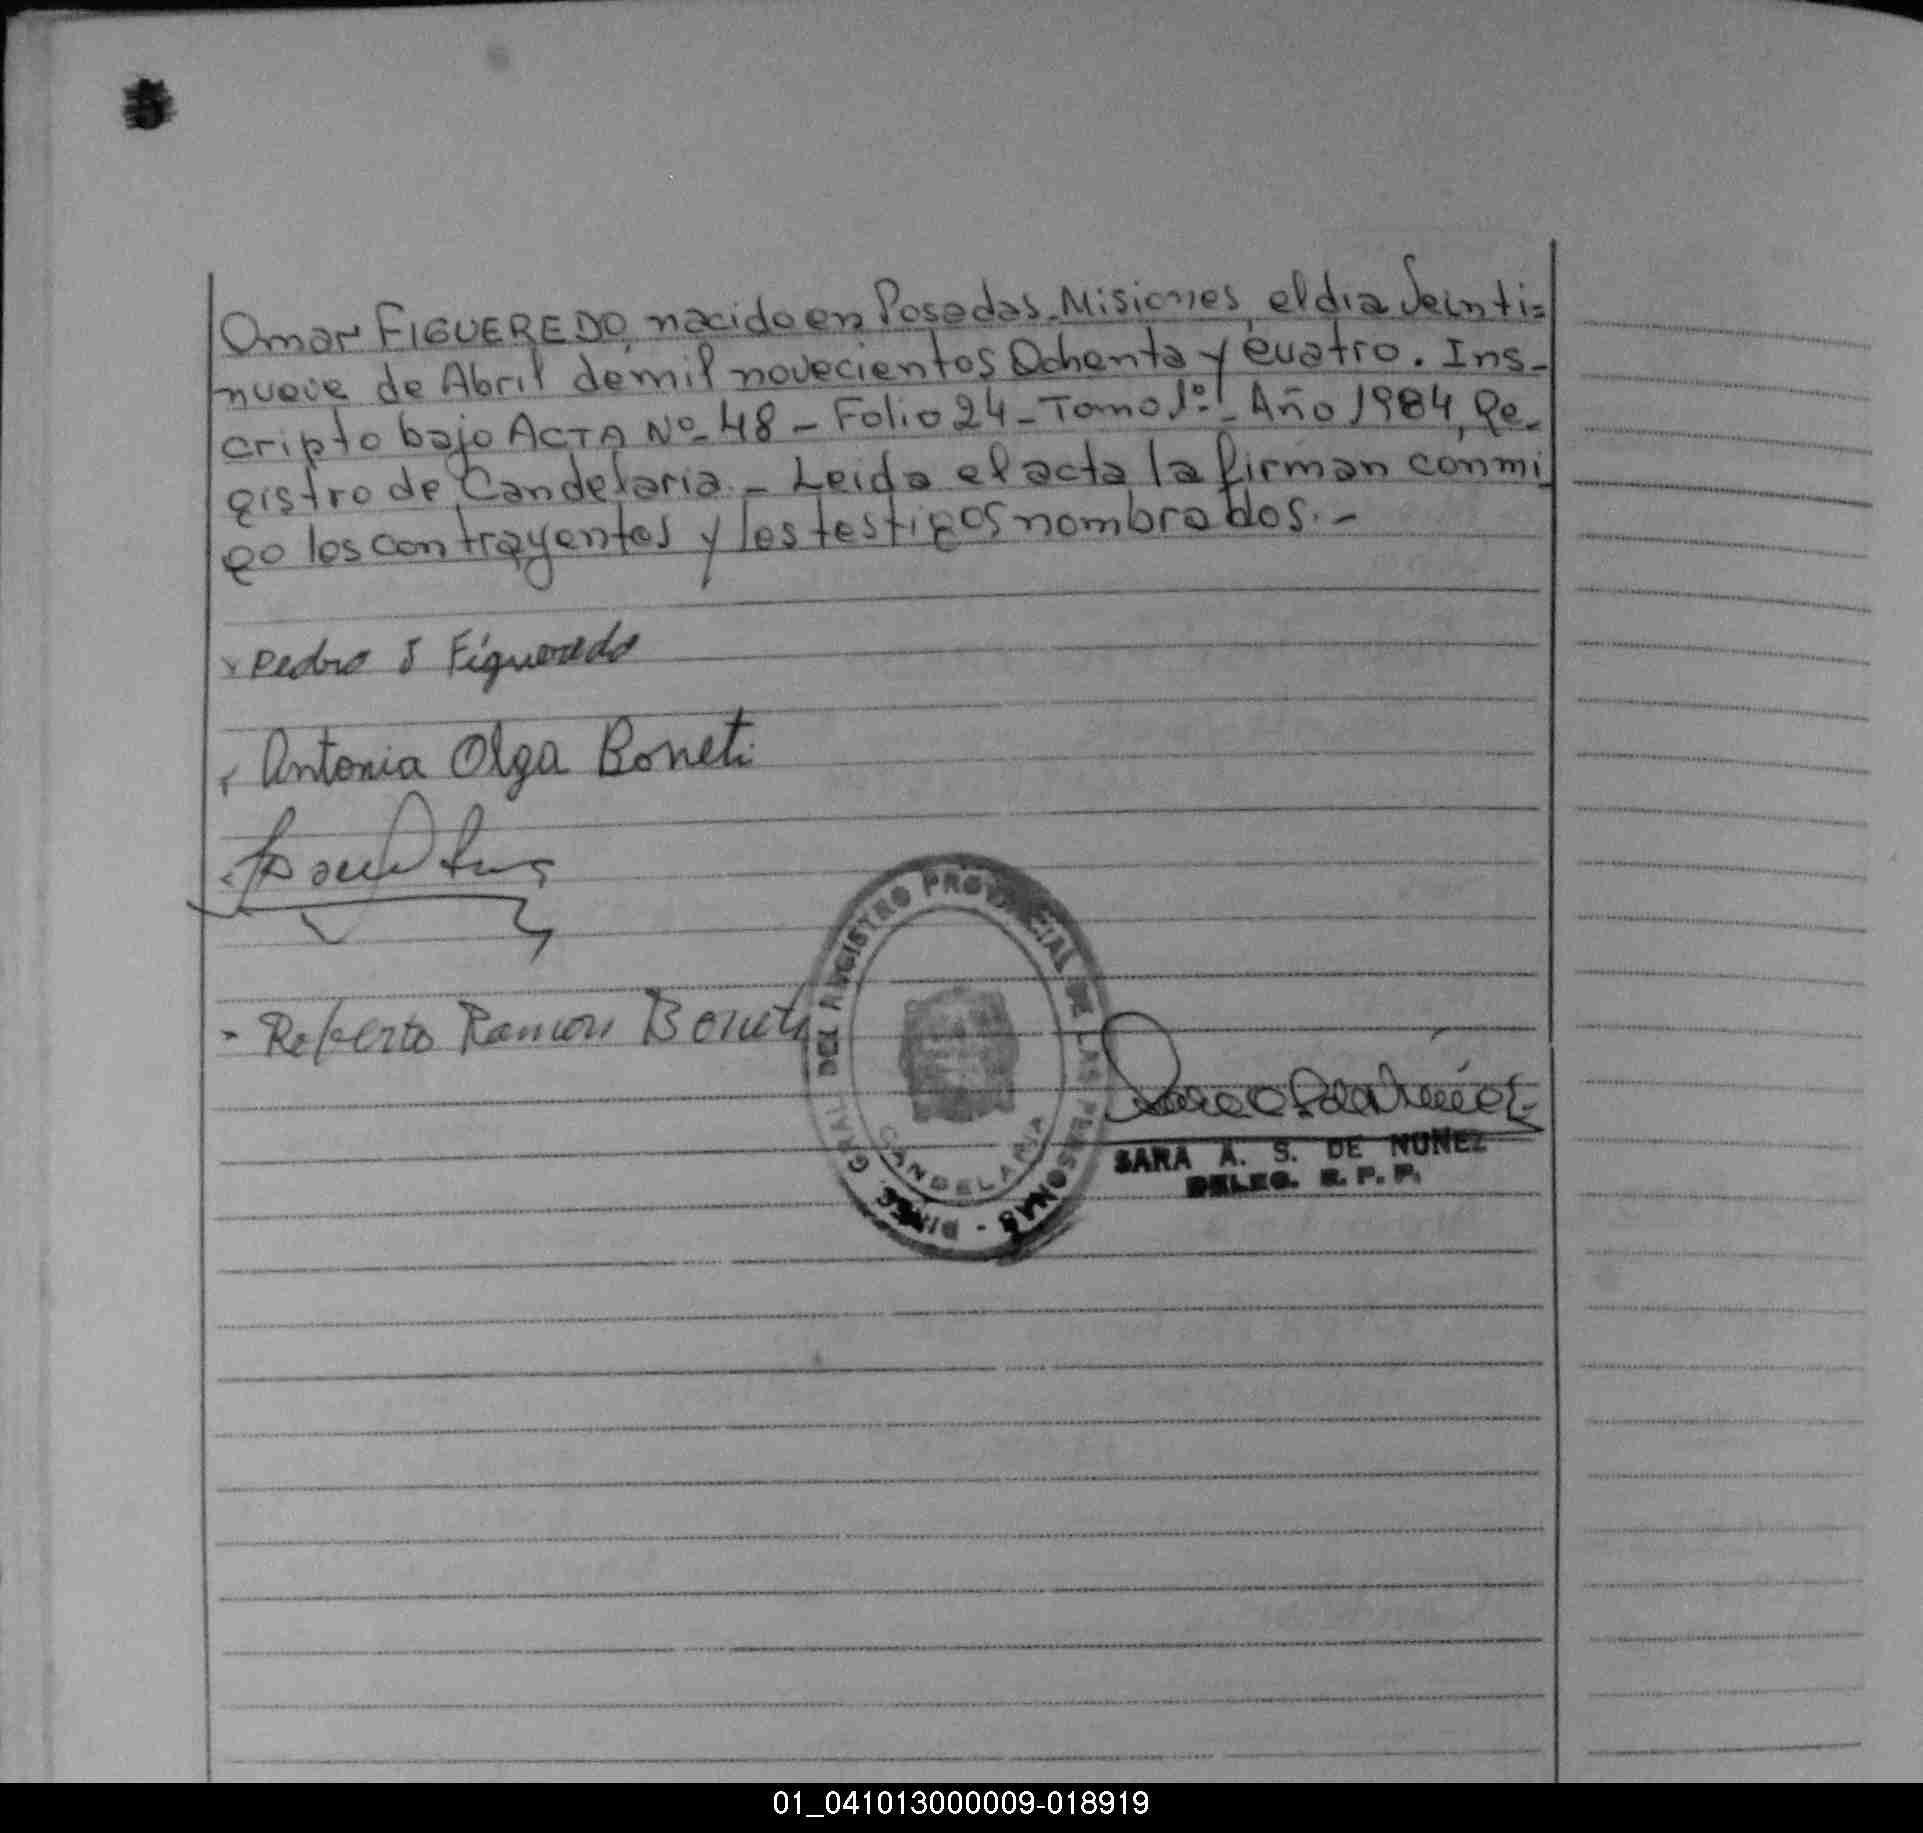 Omar FIGUEREDO, nacido en Posadas-Misiones, el dia Veinti=
nueve de Abril de mil novecientos Ochenta y cuatro. Ins-
cripto bajo ACTA Nº-48 - Folio 24 - Tomo 1º - Año 1984, Re-
gistro de Candelaria - Leida el acta la firman conmi
go los contrayentes y los testigos nombrados.-
Pedro J Figueredo
Antonia Olga Boneti
Roberto Ramon Boneti
DIREC. GRAL. DEL REGISTRO PROVINCIAL DE LAS PERSONAS -
CANDELARIA
SARA A. S. DE NUÑEZ
DELEG. R. P. P.
01_041013000009-018919